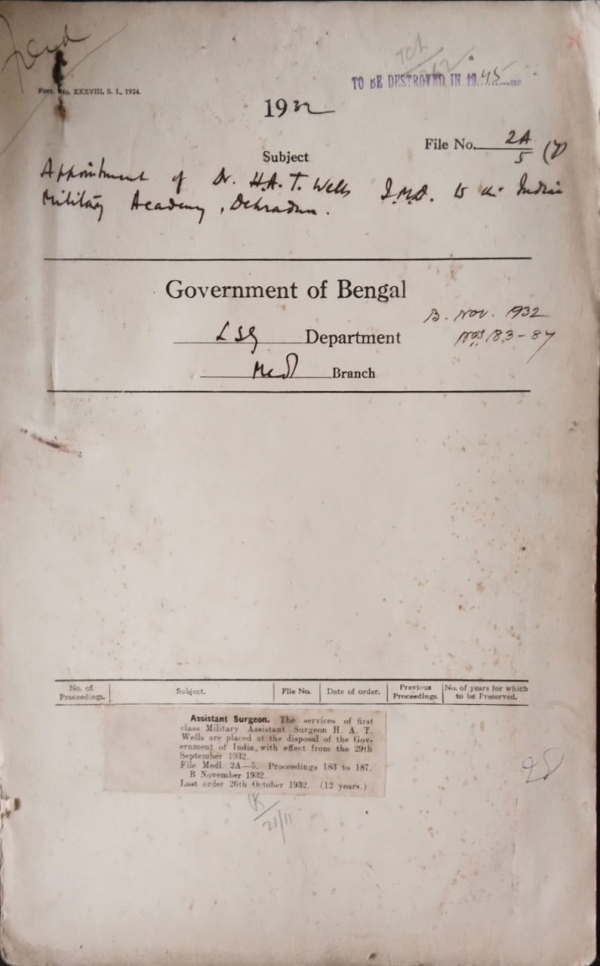 Form No. XXXVIII, S. I., 1924.
TO BE DESTROYED IN 1945
1932
File No. 2A/5 (7)
Subject
Appointment of Dr. H.A.T. Wells I.M.D. to the Indian
Military Academy, Dehradun.
Government of Bengal
B. Nov. 1932
LSG Department
Nos 183-87
Medl Branch
No. of Proceedings. Subject. File No. Date of order. Previous Proceedings. No. of years for which to be Preserved.
Assistant Surgeon. The services of first
class Military Assistant Surgeon H. A. T.
Wells are placed at the disposal of the Gov-
ernment of India, with effect from the 29th
September 1932.
File Medl. 2A—5. Proceedings 183 to 187.
B November 1932.
Last order 26th October 1932. (12 years.)
21/11